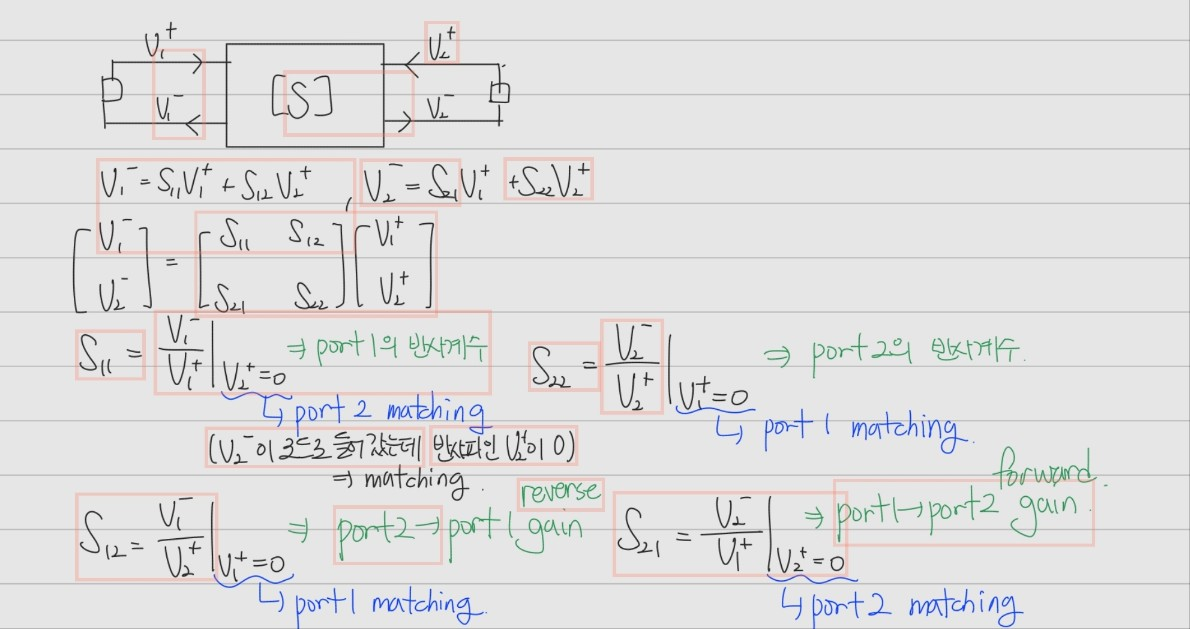 V₁⁺ V₂⁺
[S]
V₁⁻ V₂⁻
V₁⁻ = S₁₁V₁⁺ + S₁₂V₂⁺ , V₂⁻ = S₂₁V₁⁺ + S₂₂V₂⁺
[V₁⁻ V₂⁻] = [S₁₁ S₁₂ S₂₁ S₂₂] [V₁⁺ V₂⁺]
S₁₁ = V₁⁻/V₁⁺ | V₂⁺=0 ⇒ port 1의 반사계수
↳ port 2 matching
(V₂⁻이 로드로 들어갔는데 반사파인 V₂⁺이 0)
⇒ matching.
S₂₂ = V₂⁻/V₂⁺ | V₁⁺=0 ⇒ port 2의 반사계수.
↳ port 1 matching.
S₁₂ = V₁⁻/V₂⁺ | V₁⁺=0 ⇒ port2→port1 reverse gain
↳ port1 matching.
S₂₁ = V₂⁻/V₁⁺ | V₂⁺=0 ⇒ port1→port2 forward gain.
↳ port 2 matching